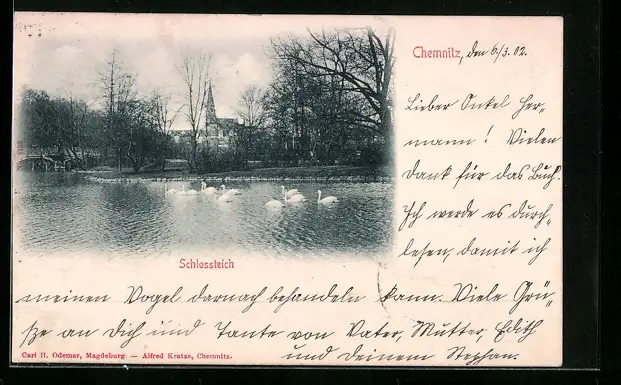 Chemnitz, den 6/3. 02.
Lieber Onkel Her-
mann! Vielen
Dank für das Buch.
Ich werde es durch-
lesen, damit ich
meinen Vogel darnach behandeln kann. Viele Grü-
ße an Dich und Tante von Vater, Mutter, Edith
und Deinem Stephan.
Schlossteich
Carl H. Odemar, Magdeburg. — Alfred Kratze, Chemnitz.